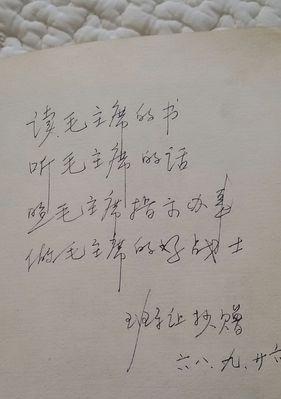 读毛主席的书
听毛主席的话
照毛主席指示办事
做毛主席的好战士
抄赠
六八.九.廿六